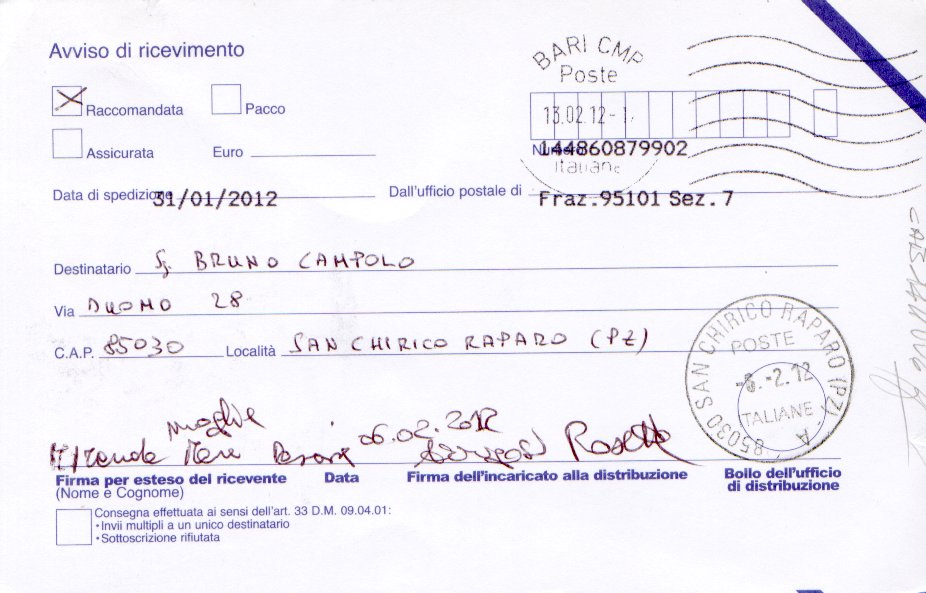 Avviso di ricevimento
BARI CMP
Poste
Raccomandata
Pacco
13.02.12-1
Assicurata
Euro
144860879902
Italiane
Data di spedizione 31/01/2012
Dall'ufficio postale di Fraz.95101 Sez.7
Destinatario Sg. BRUNO CAMPOLO
Via DUOMO 28
C.A.P. 85030 Località SAN CHIRICO RAPARO (PZ)
85030 SAN CHIRICO RAPARO (PZ) - A
POSTE
-6.-2.12
ITALIANE
moglie
06.02.2012
Firma per esteso del ricevente
Data
Firma dell'incaricato alla distribuzione
Bollo dell'ufficio
di distribuzione
(Nome e Cognome)
Consegna effettuata ai sensi dell'art. 33 D.M. 09.04.01:
• Invii multipli a un unico destinatario
• Sottoscrizione rifiutata